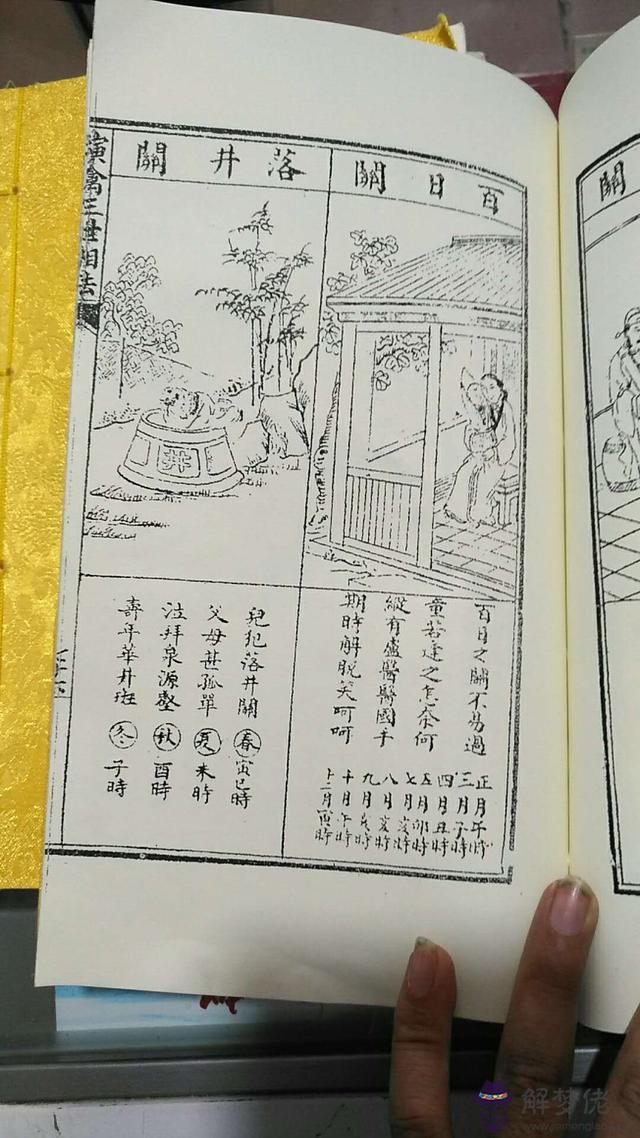 百日關
百日之關不易過
童若達之怎奈何
縱有盧醫醫國手
期時解脫笑呵呵
正月午時
三月子時
四月丑時
五月卯時
七月亥時
八月亥時
九月亥時
十月午時
十二月寅時
落井關
井
兒犯落井關
父母甚孤單
泣拜泉源
壽年華井斑
春寅巳時
夏未時
秋酉時
冬子時
演禽三世相法
關
解梦佬